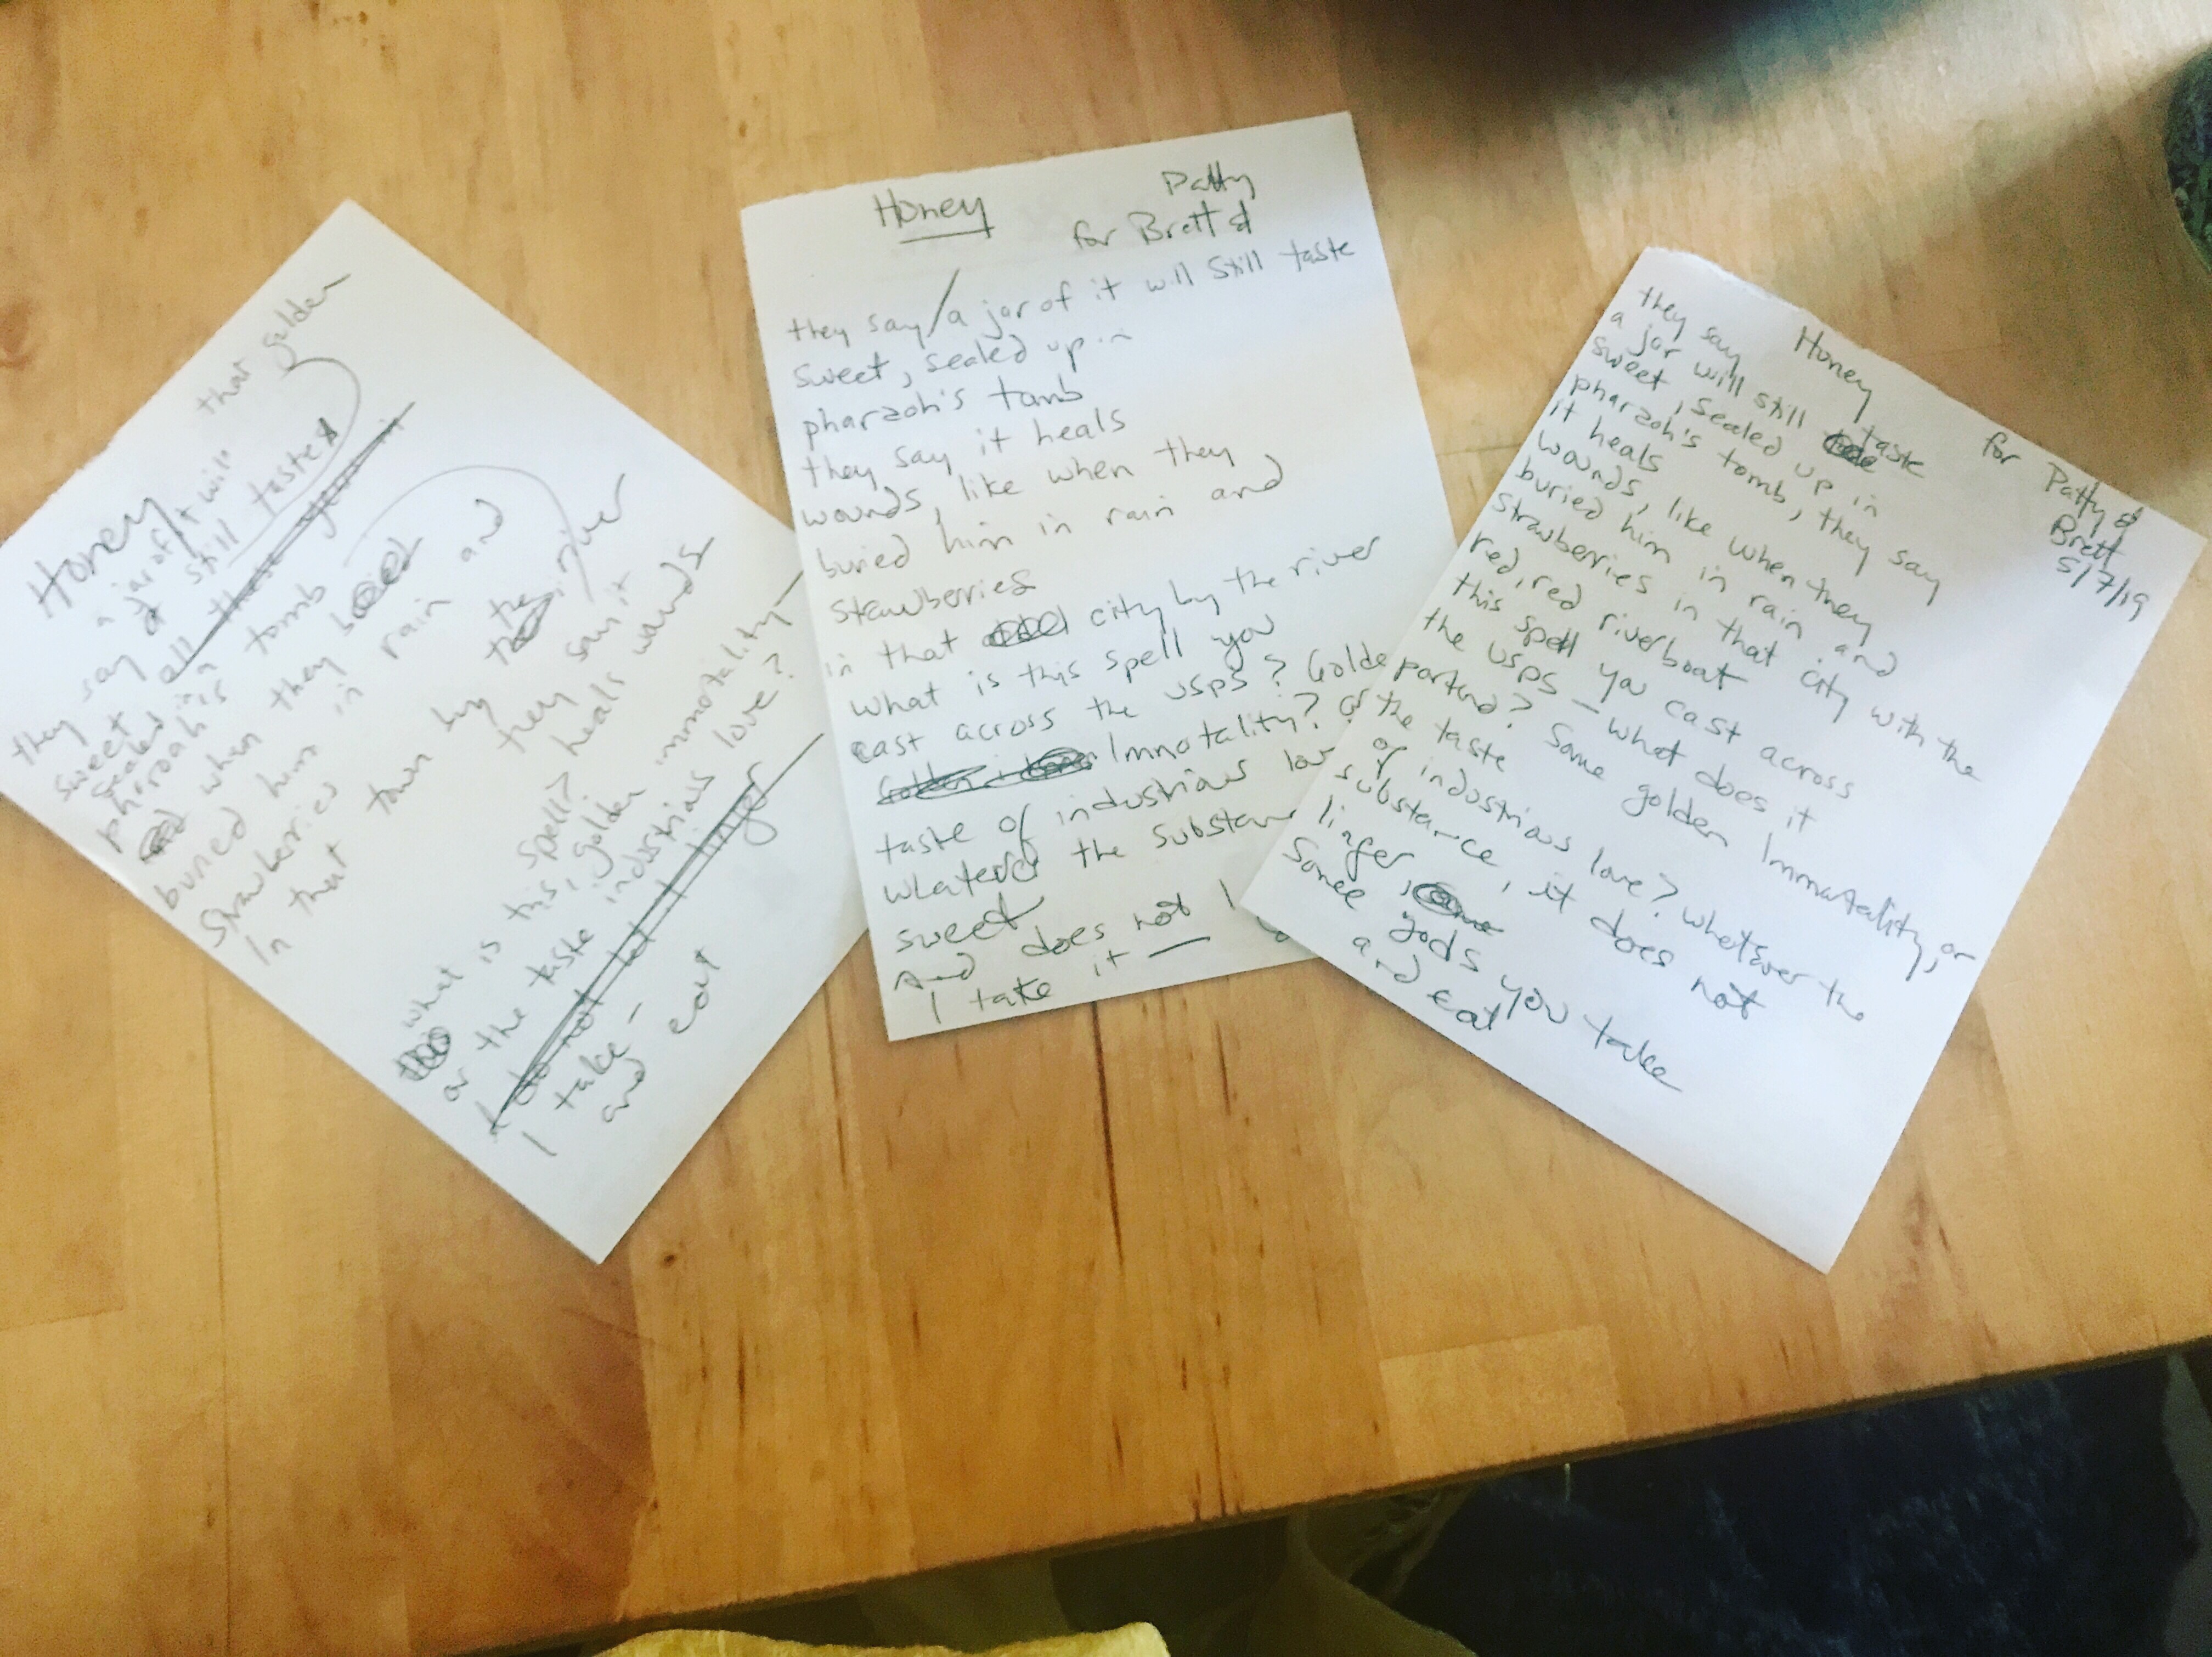 that golden
Honey
a jar of it will
they say still tasted
sweet all these years in
sealed in
phroah's tomb
when they
buried him in rain and
strawberries
In that town by the river
they say it
spell? heals wounds
what is this, golden immortality
or the taste industrious love?
I do not let it linger
I take –
and eat
Honey
Patty
for Brett &
they say/a jar of it will still taste
sweet, sealed up in
pharaoh's tomb
they say it heals
wounds, like when they
buried him in rain and
strawberries
in that city by the river
what is this spell you
cast across the USPS? Golde
Immotality? or the
taste of industrious lov
whatever the substan
sweet
And does not l
I take it —
Honey
for Patty &
Brett
5/7/19
they say
a jar will still taste
sweet, sealed up in
pharaoh's tomb, they say
it heals
wounds, like when they
buried him in rain and
strawberries in that city with the
red, red riverboat
this spell you cast across
the USPS – what does it
portend? Some golden Immortality, or
the taste
of industrious love? whatever the
substance, it does not
linger,
Somee gods you take
and eat